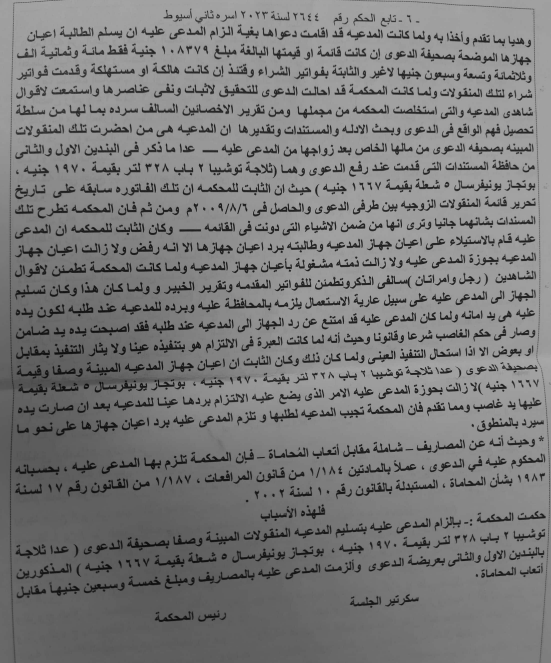 - ٦ - تابع الحكم رقم ٢٦٤٤ لسنة ٢٠٢٣ اسره ثاني أسيوط
وهديا بما تقدم وأخذا به ولما كانت المدعيه قد اقامت دعواها بغية الزام المدعى عليه ان يسلم الطالبة اعيان
جهازها الموضحة بصحيفة الدعوى إن كانت قائمة او قيمتها البالغة مبلغ ١٠٨٣٧٩ جنية فقط مائة وثمانية الف
وثلاثمائة وتسعة وسبعون جنيها لاغير والثابتة بفواتير الشراء وقتئذ إن كانت هالكة او مستهلكة وقدمت فواتير
شراء لتلك المنقولات ولما كانت المحكمة قد احالت الدعوى للتحقيق لاثبات ونفى عناصرها واستمعت لاقوال
شاهدى المدعيه والتى استخلصت المحكمه من مجملها ومن تقرير الاخصائين السالف سرده بما لها من سلطة
تحصيل فهم الواقع فى الدعوى وبحث الادله والمستندات وتقديرها ان المدعيه هى من احضرت تلك المنقولات
المبينه بصحيفه الدعوى من مالها الخاص بعد زواجها من المدعى عليه ــ عدا ما ذكر فى البندين الاول والثانى
من حافظة المستندات التى قدمت عند رفع الدعوى وهما (ثلاجة توشيبا ٢ باب ٣٢٨ لتر بقيمة ١٩٧٠ جنيه ،
بوتجاز يونيفرسال ٥ شعلة بقيمة ١٦٦٧ جنيه ) حيث ان الثابت للمحكمه ان تلك الفاتوره سابقه على تاريخ
تحرير قائمة المنقولات الزوجيه بين طرفى الدعوى والحاصل فى ٢٠٠٩/٨/٦م ومن ثم فان المحكمه تطرح تلك
المسندات بشانهما جانبا وترى انها من ضمن الاشياء التى دونت فى القائمه ــ وكان الثابت للمحكمه ان المدعى
عليه قام بالاستيلاء على اعيان جهاز المدعيه وطالبته برد اعيان جهازها الا انه رفض ولا زالت اعيان جهاز
المدعيه بحوزة المدعى عليه ولا زالت ذمته مشغولة بأعيان جهاز المدعيه ولما كانت المحكمة تطمئن لاقوال
الشاهدين ( رجل وامراتان ) سالفى الذكر وتطمئن للفواتير المقدمه وتقرير الخبير و ولما كان هذا وكان تسليم
الجهاز الى المدعى عليه على سبيل عارية الاستعمال يلزمه بالمحافظة عليه وبرده للمدعيه عند طلبه لكون يده
عليه هى يد امانه ولما كان المدعى عليه قد امتنع عن رد الجهاز الى المدعيه عند طلبه فقد اصبحت يده يد ضامن
وصار فى حكم الغاصب شرعا وقانونا وحيث أنه لما كانت العبرة فى الالتزام هو بتنفيذه عينا ولا يثار التنفيذ بمقابل
او بعوض الا اذا استحال التنفيذ العينى ولما كان ذلك وكان الثابت ان اعيان جهاز المدعيه المبينة وصفا وقيمة
بصحيفة الدعوى ( عدا ثلاجة توشيبا ٢ باب ٣٢٨ لتر بقيمة ١٩٧٠ جنيه ، بوتجاز يونيفرسال ٥ شعلة بقيمة
١٦٦٧ جنيه )لا زالت بحوزة المدعى عليه الامر الذى يضع عليه الالتزام بردها عينا للمدعيه بعد ان صارت يده
عليها يد غاصب ومما تقدم فان المحكمة تجيب المدعيه لطلبها و تلزم المدعى عليه برد اعيان جهازها على نحو ما
سيرد بالمنطوق.
* وحيث أنه عن المصاريف – شاملة مقابل أتعاب المُحاماة – فإن المحكمة تلزم بها المدعى عليه ، بحسبانه
المحكوم عليه في الدعوى ، عملاً بالمادتين ١/١٨٤ من قانون المرافعات ، ١/١٨٧ من القانون رقم ١٧ لسنة
١٩٨٣ بشأن المحاماة ، المستبدلة بالقانون رقم ١٠ لسنة ٢٠٠٢ .
فلهذه الأسباب
حكمت المحكمة :- بإلزام المدعى عليه بتسليم المدعيه المنقولات المبينة وصفا بصحيفة الدعوى ( عدا ثلاجة
توشيبا ٢ باب ٣٢٨ لتر بقيمة ١٩٧٠ جنيه ، بوتجاز يونيفرسال ٥ شعلة بقيمة ١٦٦٧ جنيه ) المذكورين
بالبندين الاول والثانى بعريضة الدعوى وألزمت المدعى عليه بالمصاريف ومبلغ خمسة وسبعين جنيهاً مقابل
أتعاب المحاماة.
سكرتير الجلسة
رئيس المحكمة